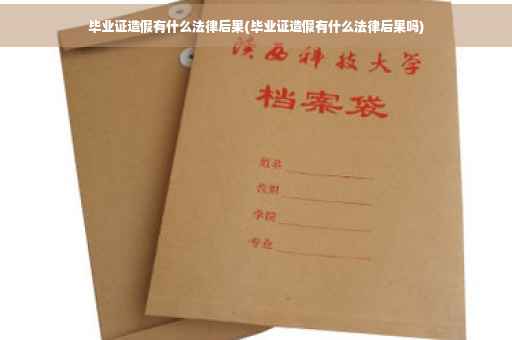 毕业证造假有什么法律后果(毕业证造假有什么法律后果吗)
陕西科技大学
档案袋
姓名
性别
学院
专业